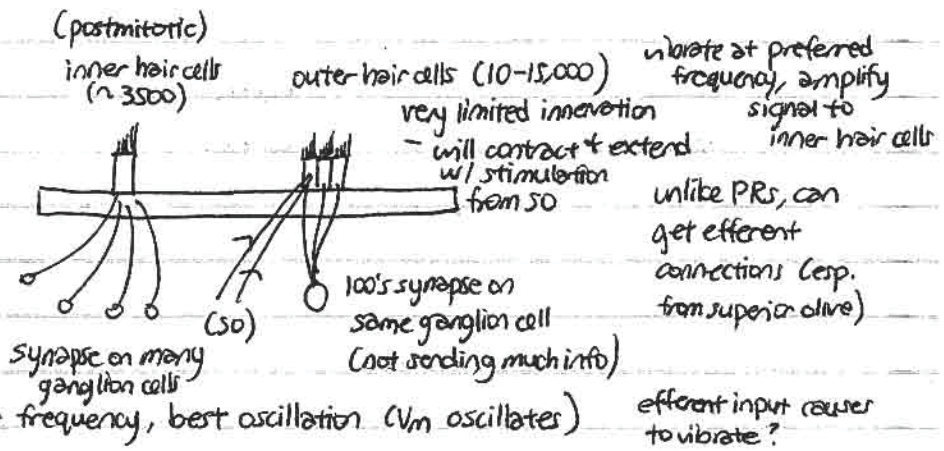 (postmitotic)
inner hair cells
(~3500)
outer hair cells (10-15,000)
very limited innervation
- will contract + extend
w/ stimulation
from SO
vibrate at preferred
frequency, amplify
signal to
inner hair cells
unlike PRs, can
get efferent
connections (esp.
from superior olive)
(SO)
100's synapse on
same ganglion cell
(not sending much info)
synapse on many
ganglion cells
frequency, best oscillation (Vm oscillates)
efferent input causes
to vibrate?